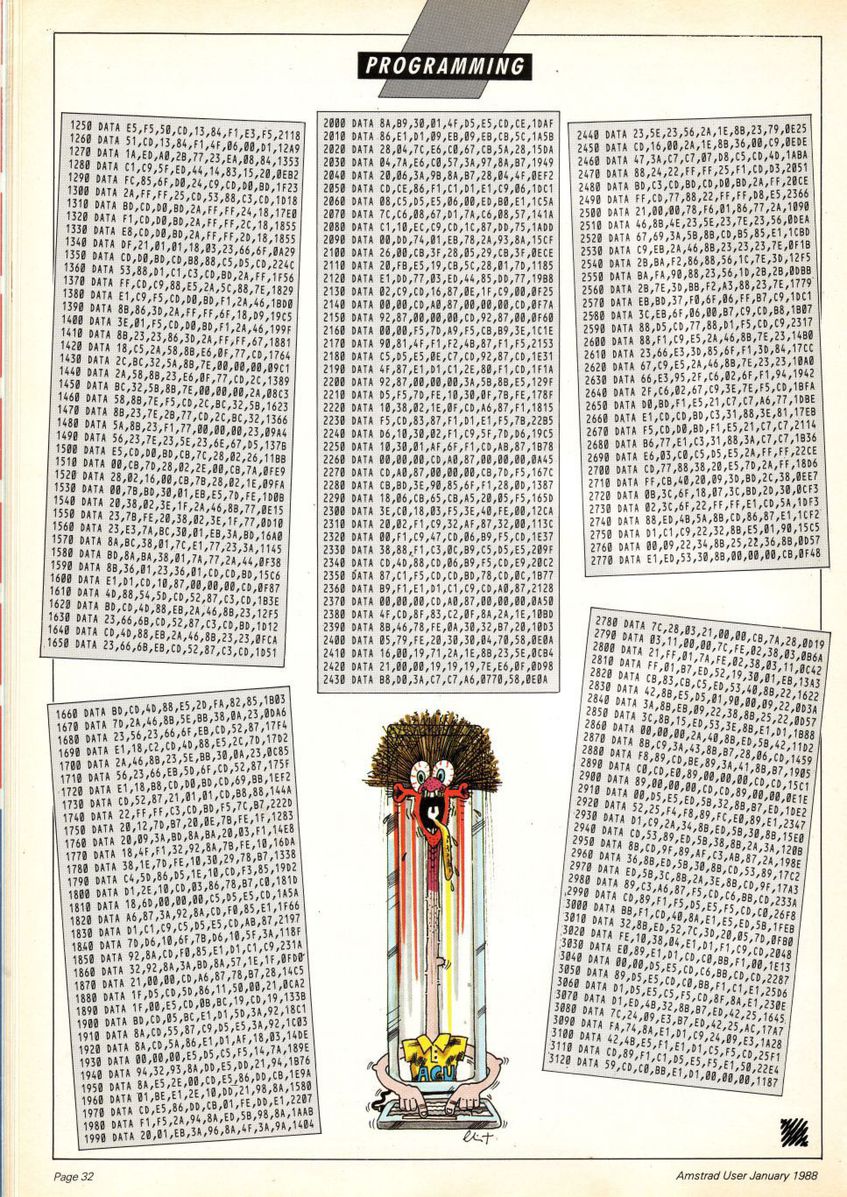 PROGRAMMING
1250 DATA E5,F5,50,CD,13,84,F1,E3,F5,2118
1260 DATA 51,CD,13,84,F1,4F,06,00,D1,12A9
1270 DATA 1A,ED,A0,2B,77,23,EA,08,84,1353
1280 DATA C1,C9,5F,ED,44,14,83,15,20,0EB2
1290 DATA FC,85,6F,D0,24,C9,CD,D0,BD,1F23
1300 DATA 2A,FF,FF,25,CD,53,88,C3,CD,1D18
1310 DATA BD,CD,D0,BD,2A,FF,FF,24,18,17E0
1320 DATA F1,CD,D0,BD,2A,FF,FF,2C,18,1855
1330 DATA E8,CD,D0,BD,2A,FF,FF,2D,18,1855
1340 DATA DF,21,01,01,18,03,23,66,6F,0A29
1350 DATA CD,D0,BD,CD,B8,88,C5,D5,CD,224C
1360 DATA 53,88,D1,C1,C3,CD,BD,2A,FF,1F56
1370 DATA FF,CD,C9,88,E5,2A,5C,88,7E,1829
1380 DATA E1,C9,F5,CD,D0,BD,F1,2A,46,1BD0
1390 DATA 8B,86,3D,2A,FF,FF,6F,18,D9,19C5
1400 DATA 3E,01,F5,CD,D0,BD,F1,2A,46,199F
1410 DATA 8B,23,23,86,3D,2A,FF,FF,67,1881
1420 DATA 18,C5,2A,58,8B,E6,0F,77,CD,1764
1430 DATA 2C,BC,32,5A,8B,7E,00,00,00,09C1
1440 DATA 2A,58,8B,23,E6,0F,77,CD,2C,1389
1450 DATA BC,32,5B,8B,7E,00,00,00,2A,08C3
1460 DATA 58,8B,7E,F5,CD,2C,BC,32,5B,1623
1470 DATA 8B,23,7E,2B,77,CD,2C,BC,32,1366
1480 DATA 5A,8B,23,F1,77,00,00,00,23,09A4
1490 DATA 56,23,7E,23,5E,23,6E,67,D5,137B
1500 DATA E5,CD,D0,BD,CB,7C,28,02,26,11BB
1510 DATA 00,CB,7D,28,02,2E,00,CB,7A,0FE9
1520 DATA 28,02,16,00,CB,7B,28,02,1E,09FA
1530 DATA 00,7B,BD,30,01,EB,E5,7D,FE,1D0B
1540 DATA 20,38,02,3E,1F,2A,46,8B,77,0E15
1550 DATA 23,7B,FE,20,38,02,3E,1F,77,0D10
1560 DATA 23,E3,7A,BC,30,01,EB,3A,BD,16A0
1570 DATA 8A,BC,38,01,7C,E1,77,23,3A,1145
1580 DATA BD,8A,BA,38,01,7A,77,2A,44,0F38
1590 DATA 8B,36,01,23,36,01,CD,CD,BD,15C6
1600 DATA E1,D1,CD,10,87,00,00,00,CD,0F87
1610 DATA 4D,88,54,5D,CD,52,87,C3,CD,1B3E
1620 DATA BD,CD,4D,88,EB,2A,46,8B,23,12F5
1630 DATA 23,66,6B,CD,52,87,C3,CD,BD,1D12
1640 DATA CD,4D,88,EB,2A,46,8B,23,23,0FCA
1650 DATA 23,66,6B,EB,CD,52,87,C3,CD,1D51
1660 DATA BD,CD,4D,88,E5,2D,FA,82,85,1B03
1670 DATA 7D,2A,46,8B,5E,BB,38,0A,23,0DA6
1680 DATA 23,56,23,66,6F,EB,CD,52,87,17F4
1690 DATA E1,18,C2,CD,4D,88,E5,2C,7D,17D2
1700 DATA 2A,46,8B,23,5E,BB,30,0A,23,0C85
1710 DATA 56,23,66,EB,5D,6F,CD,52,87,175F
1720 DATA E1,18,B8,CD,D0,BD,CD,69,BB,1EF2
1730 DATA CD,52,87,21,01,01,CD,B8,88,144A
1740 DATA 22,FF,FF,C3,CD,BD,F5,7C,B7,222D
1750 DATA 20,12,7D,B7,20,0E,7B,FE,1F,1283
1760 DATA 20,09,3A,BD,8A,BA,20,03,F1,14E8
1770 DATA 18,4F,F1,32,92,8A,7B,FE,10,16DA
1780 DATA 38,1E,7D,FE,10,30,29,78,B7,1338
1790 DATA C4,5D,86,D5,1E,10,CD,F3,85,19D2
1800 DATA D1,2E,10,CD,03,86,78,B7,C0,181D
1810 DATA 18,6D,00,00,00,C5,D5,E5,CD,1A5A
1820 DATA A6,87,3A,92,8A,CD,F0,85,E1,1F66
1830 DATA D1,C1,C9,C5,D5,E5,CD,AB,87,2197
1840 DATA 7D,D6,10,6F,7B,D6,10,5F,3A,118F
1850 DATA 92,8A,CD,F0,85,E1,D1,C1,C9,231A
1860 DATA 32,92,8A,3A,BD,8A,57,1E,1F,0FD0
1870 DATA 21,00,00,CD,A6,87,78,B7,28,14C5
1880 DATA 1F,D5,CD,5D,86,11,50,00,21,0CA2
1890 DATA 1F,00,E5,CD,0B,BC,19,CD,19,133B
1900 DATA BD,CD,05,BC,E1,D1,5D,3A,92,18C1
1910 DATA 8A,CD,55,87,C9,D5,E5,3A,92,1C03
1920 DATA 8A,CD,5A,86,E1,D1,AF,18,03,14DE
1930 DATA 00,00,00,E5,D5,C5,F5,14,7A,189E
1940 DATA 94,32,93,8A,DD,E5,DD,21,94,1B76
1950 DATA 8A,E5,2E,00,CD,E5,86,DD,CB,1E9A
1960 DATA 01,BE,E1,2E,10,DD,21,98,8A,1580
1970 DATA CD,E5,86,DD,CB,01,FE,DD,E1,2207
1980 DATA F1,F5,2A,94,8A,ED,5B,98,8A,1AAB
1990 DATA 20,01,EB,3A,96,8A,4F,3A,9A,1404
2000 DATA 8A,B9,30,01,4F,D5,E5,CD,CE,1DAF
2010 DATA 86,E1,D1,09,EB,09,EB,CB,5C,1A5B
2020 DATA 28,04,7C,E6,C0,67,CB,5A,28,15DA
2030 DATA 04,7A,E6,C0,57,3A,97,8A,B7,1949
2040 DATA 20,06,3A,9B,8A,B7,28,04,4F,0EF2
2050 DATA CD,CE,86,F1,C1,D1,E1,C9,06,1DC1
2060 DATA 08,C5,D5,E5,06,00,ED,B0,E1,1C5A
2070 DATA 7C,C6,08,67,D1,7A,C6,08,57,141A
2080 DATA C1,10,EC,C9,CD,1C,87,DD,75,1ADD
2090 DATA 00,DD,74,01,EB,78,2A,93,8A,15CF
2100 DATA 26,00,CB,3F,28,05,29,CB,3F,0ECE
2110 DATA 20,FB,E5,19,CB,5C,28,01,7D,1185
2120 DATA E1,DD,77,03,ED,44,85,DD,77,19B8
2130 DATA 02,C9,CD,16,87,0E,1F,C9,00,0F25
2140 DATA 00,00,CD,A0,87,00,00,00,CD,0F7A
2150 DATA 92,87,00,00,00,CD,92,87,00,0F60
2160 DATA 00,00,F5,7D,A9,F5,CB,B9,3E,1C1E
2170 DATA 90,81,4F,F1,F2,4B,87,F1,F5,2153
2180 DATA C5,D5,E5,0E,C7,CD,92,87,CD,1E31
2190 DATA 4F,87,E1,D1,C1,2E,80,F1,CD,1F1A
2200 DATA 92,87,00,00,00,3A,5B,8B,E5,129F
2210 DATA D5,F5,7D,FE,10,30,0F,7B,FE,178F
2220 DATA 10,38,02,1E,0F,CD,A6,87,F1,1815
2230 DATA F5,CD,83,87,F1,D1,E1,F5,7B,22B5
2240 DATA D6,10,30,02,F1,C9,5F,7D,D6,19C5
2250 DATA 10,30,01,AF,6F,F1,CD,AB,87,1B78
2260 DATA 00,00,00,CD,A0,87,00,00,00,0A45
2270 DATA CD,A0,87,00,00,00,CB,7D,F5,167C
2280 DATA CB,BD,3E,90,85,6F,F1,28,0D,1387
2290 DATA 18,06,CB,65,CB,A5,20,05,F5,165D
2300 DATA 3E,C0,18,03,F5,3E,40,FE,00,12CA
2310 DATA 20,02,F1,C9,32,AF,87,32,00,113C
2320 DATA 00,F1,C9,47,CD,06,B9,F5,CD,1E37
2330 DATA 38,88,F1,C3,0C,B9,C5,D5,E5,209F
2340 DATA CD,4D,88,CD,06,B9,F5,CD,E9,20C2
2350 DATA 87,C1,F5,CD,CD,BD,78,CD,0C,1B77
2360 DATA B9,F1,E1,D1,C1,C9,CD,A0,87,2128
2370 DATA 00,00,00,CD,A0,87,00,00,00,0A50
2380 DATA 4F,CD,8F,83,C2,0F,8A,2A,1E,10BD
2390 DATA 8B,46,78,FE,0A,30,32,B7,20,10D3
2400 DATA 05,79,FE,20,30,30,04,70,58,0E0A
2410 DATA 16,00,19,71,2A,1E,8B,23,5E,0CB4
2420 DATA 21,00,00,19,19,19,7E,E6,0F,0D98
2430 DATA B8,D0,3A,C7,C7,A6,0770,58,0E0A
2440 DATA 23,5E,23,56,2A,1E,8B,23,79,0E25
2450 DATA CD,16,00,2A,1E,8B,36,00,C9,0EDE
2460 DATA 47,3A,C7,C7,07,D8,C5,CD,4D,1ABA
2470 DATA 88,24,22,FF,FF,25,F1,CD,D3,2051
2480 DATA BD,C3,CD,BD,CD,D0,BD,2A,FF,20CE
2490 DATA FF,CD,77,88,22,FF,FF,D8,E5,2366
2500 DATA 21,00,00,78,F6,01,86,77,2A,1090
2510 DATA 46,8B,4E,23,5E,23,7E,23,56,0DEA
2520 DATA 67,69,3A,5B,8B,CD,B5,85,E1,1CBD
2530 DATA C9,EB,2A,46,8B,23,23,23,7E,0F1B
2540 DATA 2B,BA,F2,86,88,56,1C,7E,3D,12F5
2550 DATA BA,FA,90,88,23,56,1D,2B,2B,0DBB
2560 DATA 2B,7E,3D,BB,F2,A3,88,23,7E,1779
2570 DATA EB,BD,37,F0,6F,06,FF,B7,C9,1DC1
2580 DATA 3C,EB,6F,06,00,B7,C9,CD,B8,1B07
2590 DATA 88,D5,CD,77,88,D1,F5,CD,C9,2317
2600 DATA 88,F1,C9,E5,2A,46,8B,7E,23,14B0
2610 DATA 23,66,E3,3D,85,6F,F1,3D,84,17CC
2620 DATA 67,C9,E5,2A,46,8B,7E,23,23,10A0
2630 DATA 66,E3,95,2F,C6,02,6F,F1,94,1942
2640 DATA 2F,C6,02,67,C9,3E,7E,F5,CD,1BFA
2650 DATA D0,BD,F1,E5,21,C7,C7,A6,77,1DBE
2660 DATA E1,CD,CD,BD,C3,31,88,3E,81,17EB
2670 DATA F5,CD,D0,BD,F1,E5,21,C7,C7,2114
2680 DATA B6,77,E1,C3,31,88,3A,C7,C7,1B36
2690 DATA E6,03,C0,C5,D5,E5,2A,FF,FF,22CE
2700 DATA CD,77,88,38,20,E5,7D,2A,FF,18D6
2710 DATA FF,CB,40,20,09,3D,BD,2C,38,0EE7
2720 DATA 0B,3C,6F,18,07,3C,BD,2D,30,0CF3
2730 DATA 02,3C,6F,22,FF,FF,E1,CD,5A,1DF3
2740 DATA 88,ED,4B,5A,8B,CD,86,87,E1,1CF2
2750 DATA D1,C1,C9,22,32,8B,E5,01,90,15C5
2760 DATA 00,09,22,34,8B,25,22,36,8B,0D57
2770 DATA E1,ED,53,30,8B,00,00,00,CB,0F48
2780 DATA 7C,28,03,21,00,00,CB,7A,28,0D19
2790 DATA 03,11,00,00,7C,FE,02,38,03,0B6A
2800 DATA 21,FF,01,7A,FE,02,38,03,11,0C42
2810 DATA FF,01,B7,ED,52,19,30,01,EB,13A3
2820 DATA CB,83,CB,C5,ED,53,40,8B,22,1622
2830 DATA 42,8B,E5,D5,01,90,00,09,22,0D3A
2840 DATA 3A,8B,EB,09,22,38,8B,25,22,0D57
2850 DATA 3C,8B,15,ED,53,3E,8B,E1,D1,1B88
2860 DATA 00,00,00,2A,40,8B,ED,5B,42,11D2
2870 DATA 8B,C9,3A,43,8B,B7,28,06,CD,1459
2880 DATA F8,89,CD,BE,89,3A,41,8B,B7,1905
2890 DATA C0,CD,E0,89,00,00,00,CD,CD,15C1
2900 DATA 89,00,00,00,CD,CD,89,00,00,0E1E
2910 DATA 00,D5,E5,ED,5B,32,8B,B7,ED,1DE2
2920 DATA 52,25,F4,F8,89,FC,E0,89,E1,2347
2930 DATA D1,C9,2A,34,8B,ED,5B,30,8B,15E0
2940 DATA CD,53,89,ED,5B,38,8B,2A,3A,120B
2950 DATA 8B,CD,9F,89,AF,C3,AB,87,2A,198E
2960 DATA 36,8B,ED,5B,30,8B,CD,53,89,17C2
2970 DATA ED,5B,3C,8B,2A,3E,8B,CD,9F,17A3
2980 DATA 89,C3,A6,87,F5,CD,C6,BB,CD,233A
2990 DATA CD,89,F1,F5,D5,E5,F5,CD,C0,26F8
3000 DATA BB,F1,CD,40,8A,E1,E5,ED,5B,1FEB
3010 DATA 32,8B,ED,52,7C,3D,20,05,7D,0FB0
3020 DATA FE,10,38,04,E1,D1,F1,C9,CD,2048
3030 DATA E0,89,E1,D1,CD,C0,BB,F1,00,1E13
3040 DATA 00,00,D5,E5,CD,C6,BB,CD,CD,2287
3050 DATA 89,D5,E5,CD,C0,BB,F1,C1,E1,25D6
3060 DATA D1,D5,E5,C5,F5,CD,8F,8A,E1,230E
3070 DATA D1,ED,4B,32,8B,B7,ED,42,25,1645
3080 DATA 7C,24,09,E3,B7,ED,42,25,AC,17A7
3090 DATA FA,74,8A,E1,D1,C9,24,09,E3,1A28
3100 DATA 42,4B,E5,F1,E1,D1,C5,F5,CD,25F1
3110 DATA CD,89,F1,C1,D5,E5,F5,E1,50,22E4
3120 DATA 59,CD,C0,BB,E1,D1,00,00,00,1187
ACU
Page 32
Amstrad User January 1988